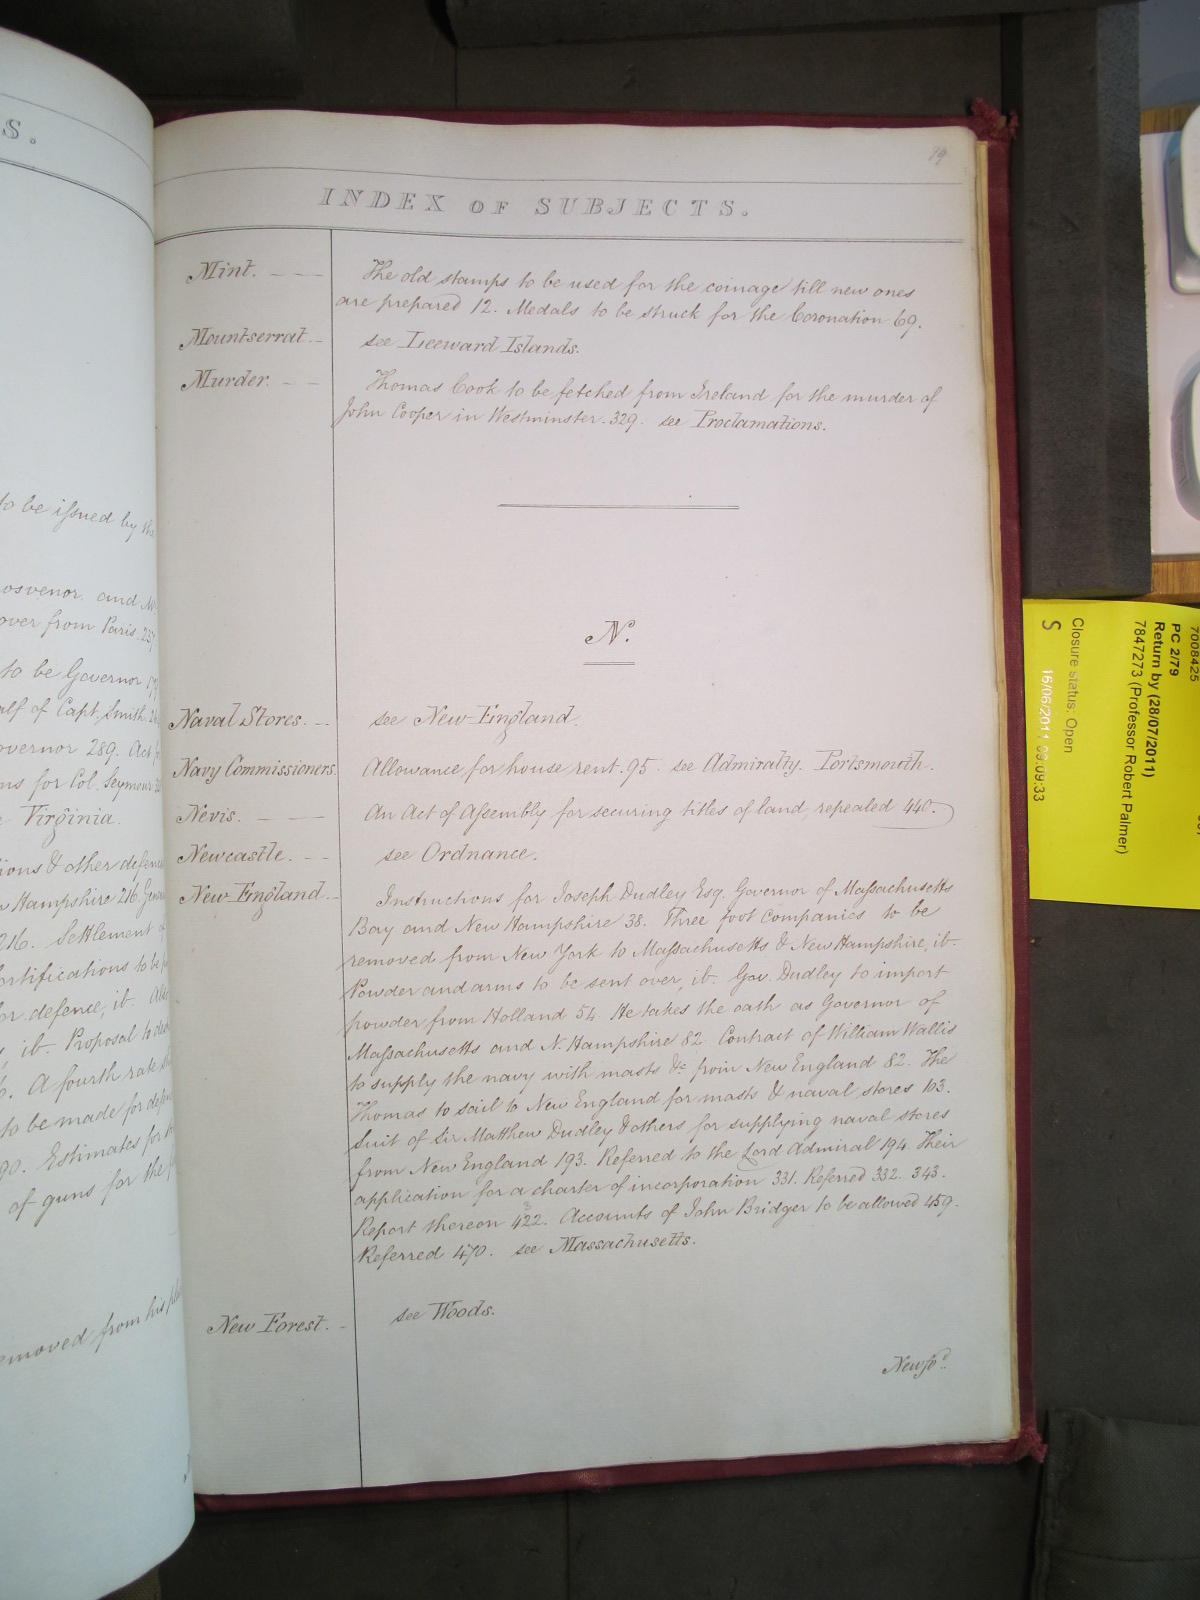 S.
to be issued by the
osvenor and
over from Paris. 257
to be Governor
alf of Capt. Smith
overnor 289. Act
ns for Col. Seymour
Virginia.
ions & other defen
w Hampshire 216.
216. Settlement
ortifications to be
or defence, ib.
ib. Proposal to
A fourth rate
to be made for defen
90. Estimates for
of guns for the
emoved from his
79
INDEX OF SUBJECTS.
Mint. The old stamps to be used for the coinage till new ones
are prepared 12. Medals to be struck for the Coronation 69.
Mountserrat. see Leeward Islands.
Murder. Thomas Cook to be fetched from Ireland for the murder of
John Cooper in Westminster. 329. see Proclamations.
N.
Naval Stores. see New England.
Navy Commissioners. Allowance for house rent. 95. see Admiralty. Portsmouth.
Nevis. An Act of Assembly for securing titles of land, repealed 440.
Newcastle. see Ordnance.
New England. Instructions for Joseph Dudley Esq. Governor of Massachusetts
Bay and New Hampshire 38. Three foot Companies to be
removed from New York to Massachusetts & New Hampshire, ib.
Powder and arms to be sent over, ib. Gov. Dudley to import
powder from Holland 54. He takes the oath as Governor of
Massachusetts and N. Hampshire 82. Contract of William Wallis
to supply the navy with masts &c from New England 82. The
Thomas to sail to New England for masts & naval stores 103.
Suit of Sir Matthew Dudley & others for supplying naval stores
from New England 193. Referred to the Lord Admiral 194. Their
application for a charter of incorporation 331. Referred 332. 343.
Report thereon 422. Accounts of John Bridger to be allowed 459.
Referred 470. see Massachusetts.
New Forest. see Woods.
Newfo.d
7008425
PC 2/79
Return by (28/07/2011)
7847273 (Professor Robert Palmer)
Closure status: Open
S
16/06/2011 09:09:33